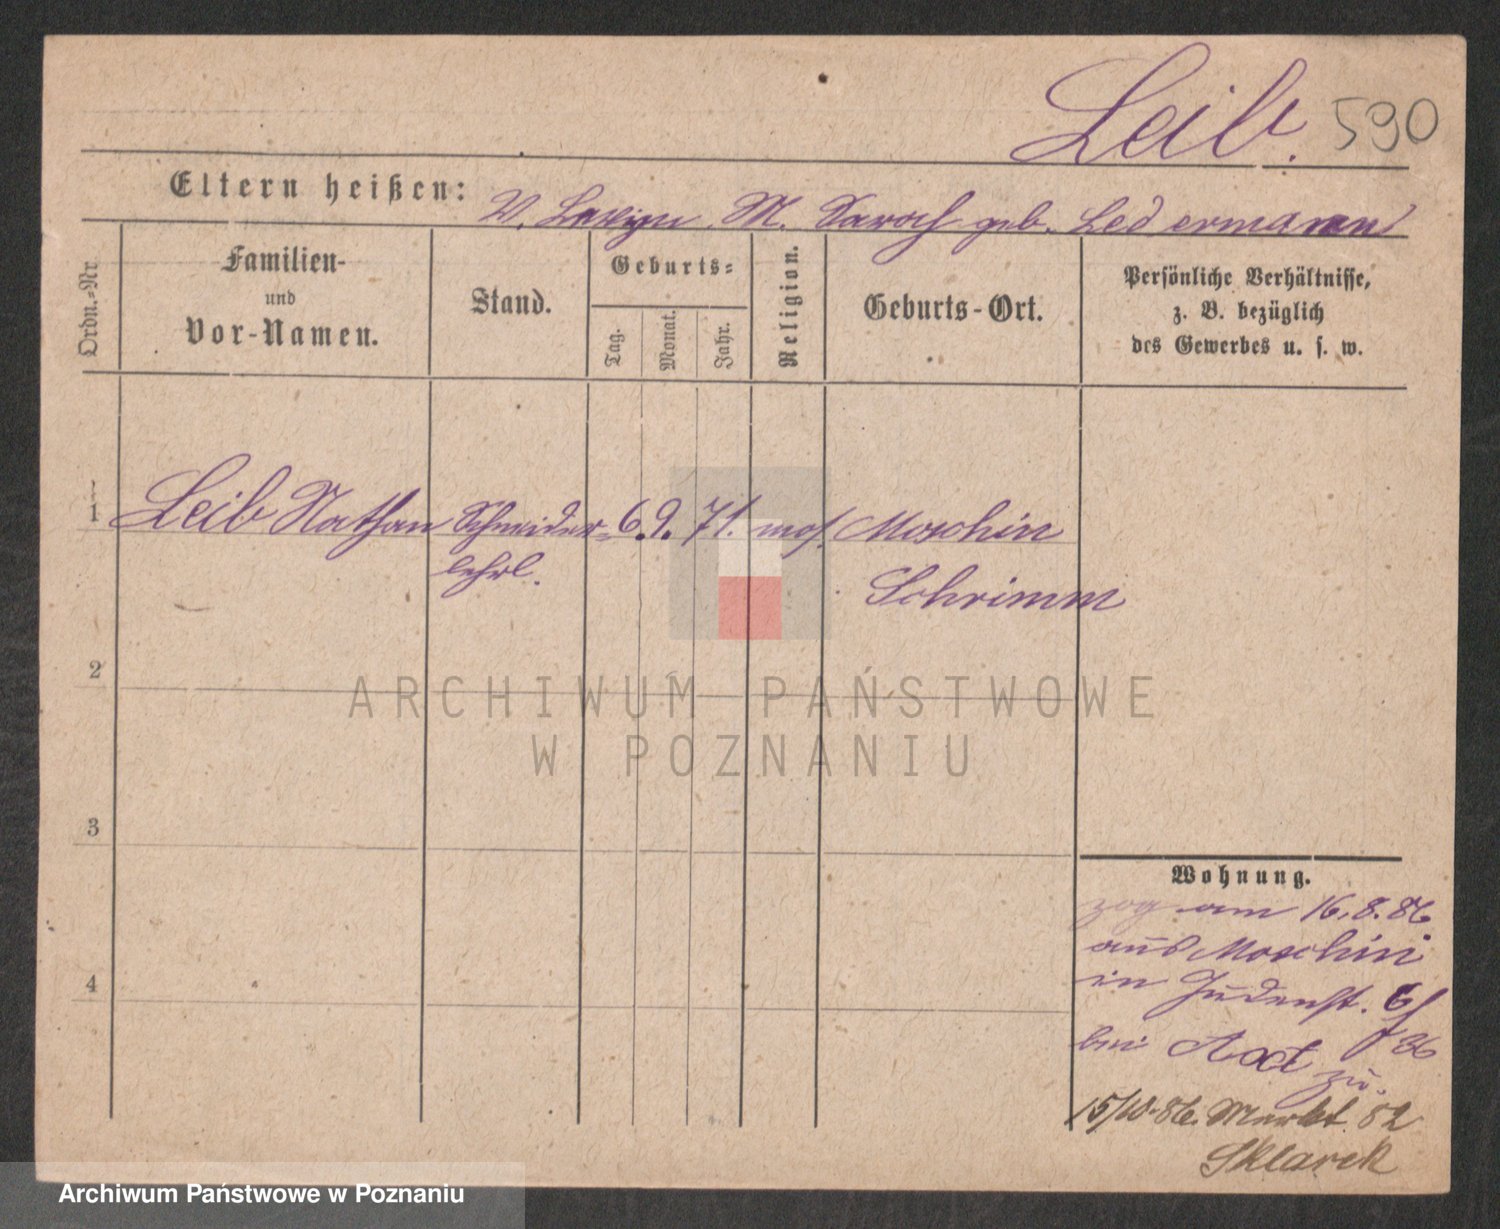 Leib. 590
Eltern heißen: V. Lewyn M. Sarah geb. Ledermann
Ordn.-Nr
Familien-
und
Vor-Namen.
Stand.
Geburts-
Tag.
Monat.
Jahr.
Religion.
Geburts-Ort.
Persönliche Verhältnisse,
z. B. bezüglich
des Gewerbes u. s. w.
1 Leib Nathan Schneider= 6. 9. 71. mos. Moschin
lehrl. Schrimm
2
3
4
Wohnung.
zog am 16.8.86
aus Moschin
in Judenst. 6
bei zu.
15/10.86. Markt 82
Sklarek
ARCHIWUM PAŃSTWOWE
W POZNANIU
Archiwum Państwowe w Poznaniu